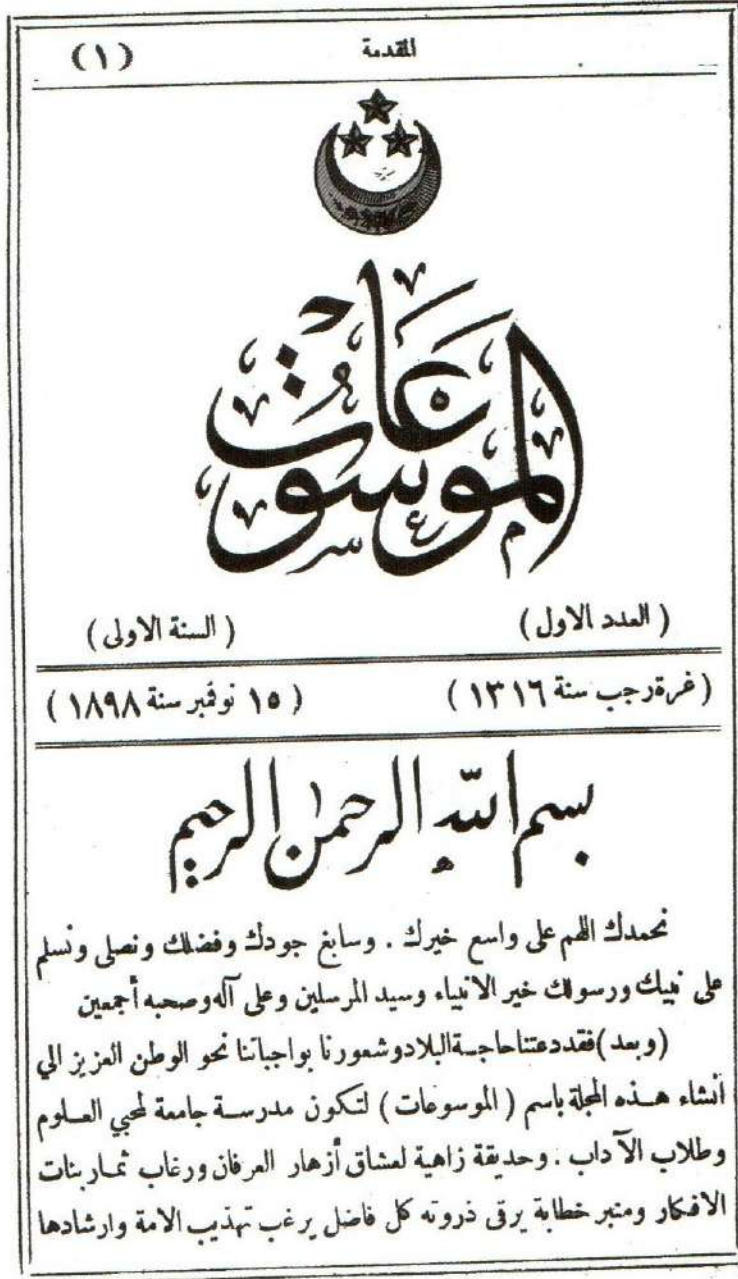 المقدمة (١)
الموسوعات
(العدد الاول) (السنة الاولى)
(غرة رجب سنة ١٣١٦) (١٥ نوفمبر سنة ١٨٩٨)
بسم الله الرحمن الرحيم
نحمدك اللهم على واسع خيرك . وسابغ جودك وفضلك ونصلى ونسلم
على نبيك ورسولك خير الانبياء وسيد المرسلين وعلى آله وصحبه أجمعين
(وبعد) فقد دعتنا حاجة البلاد وشعورنا بواجباتنا نحو الوطن العزيز الي
انشاء هذه المجلة باسم (الموسوعات) لتكون مدرسة جامعة لمحبي العلوم
وطلاب الآداب . وحديقة زاهية لعشاق أزهار العرفان ورغاب ثمار بنات
الافكار ومنبر خطابة يرقى ذروته كل فاضل يرغب تهذيب الامة وارشادها